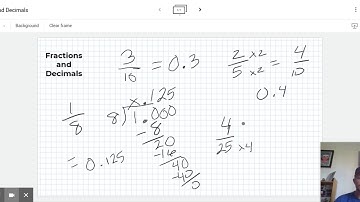 nd Decimals
Background
Clear frame
Fractions and Decimals
3/10 = 0.3
2/5 ×2 ×2 = 4/10
0.4
1/8
×.125
8 1.000
-8
20
-16
40
-40
0
= 0.125
4/25 ×4